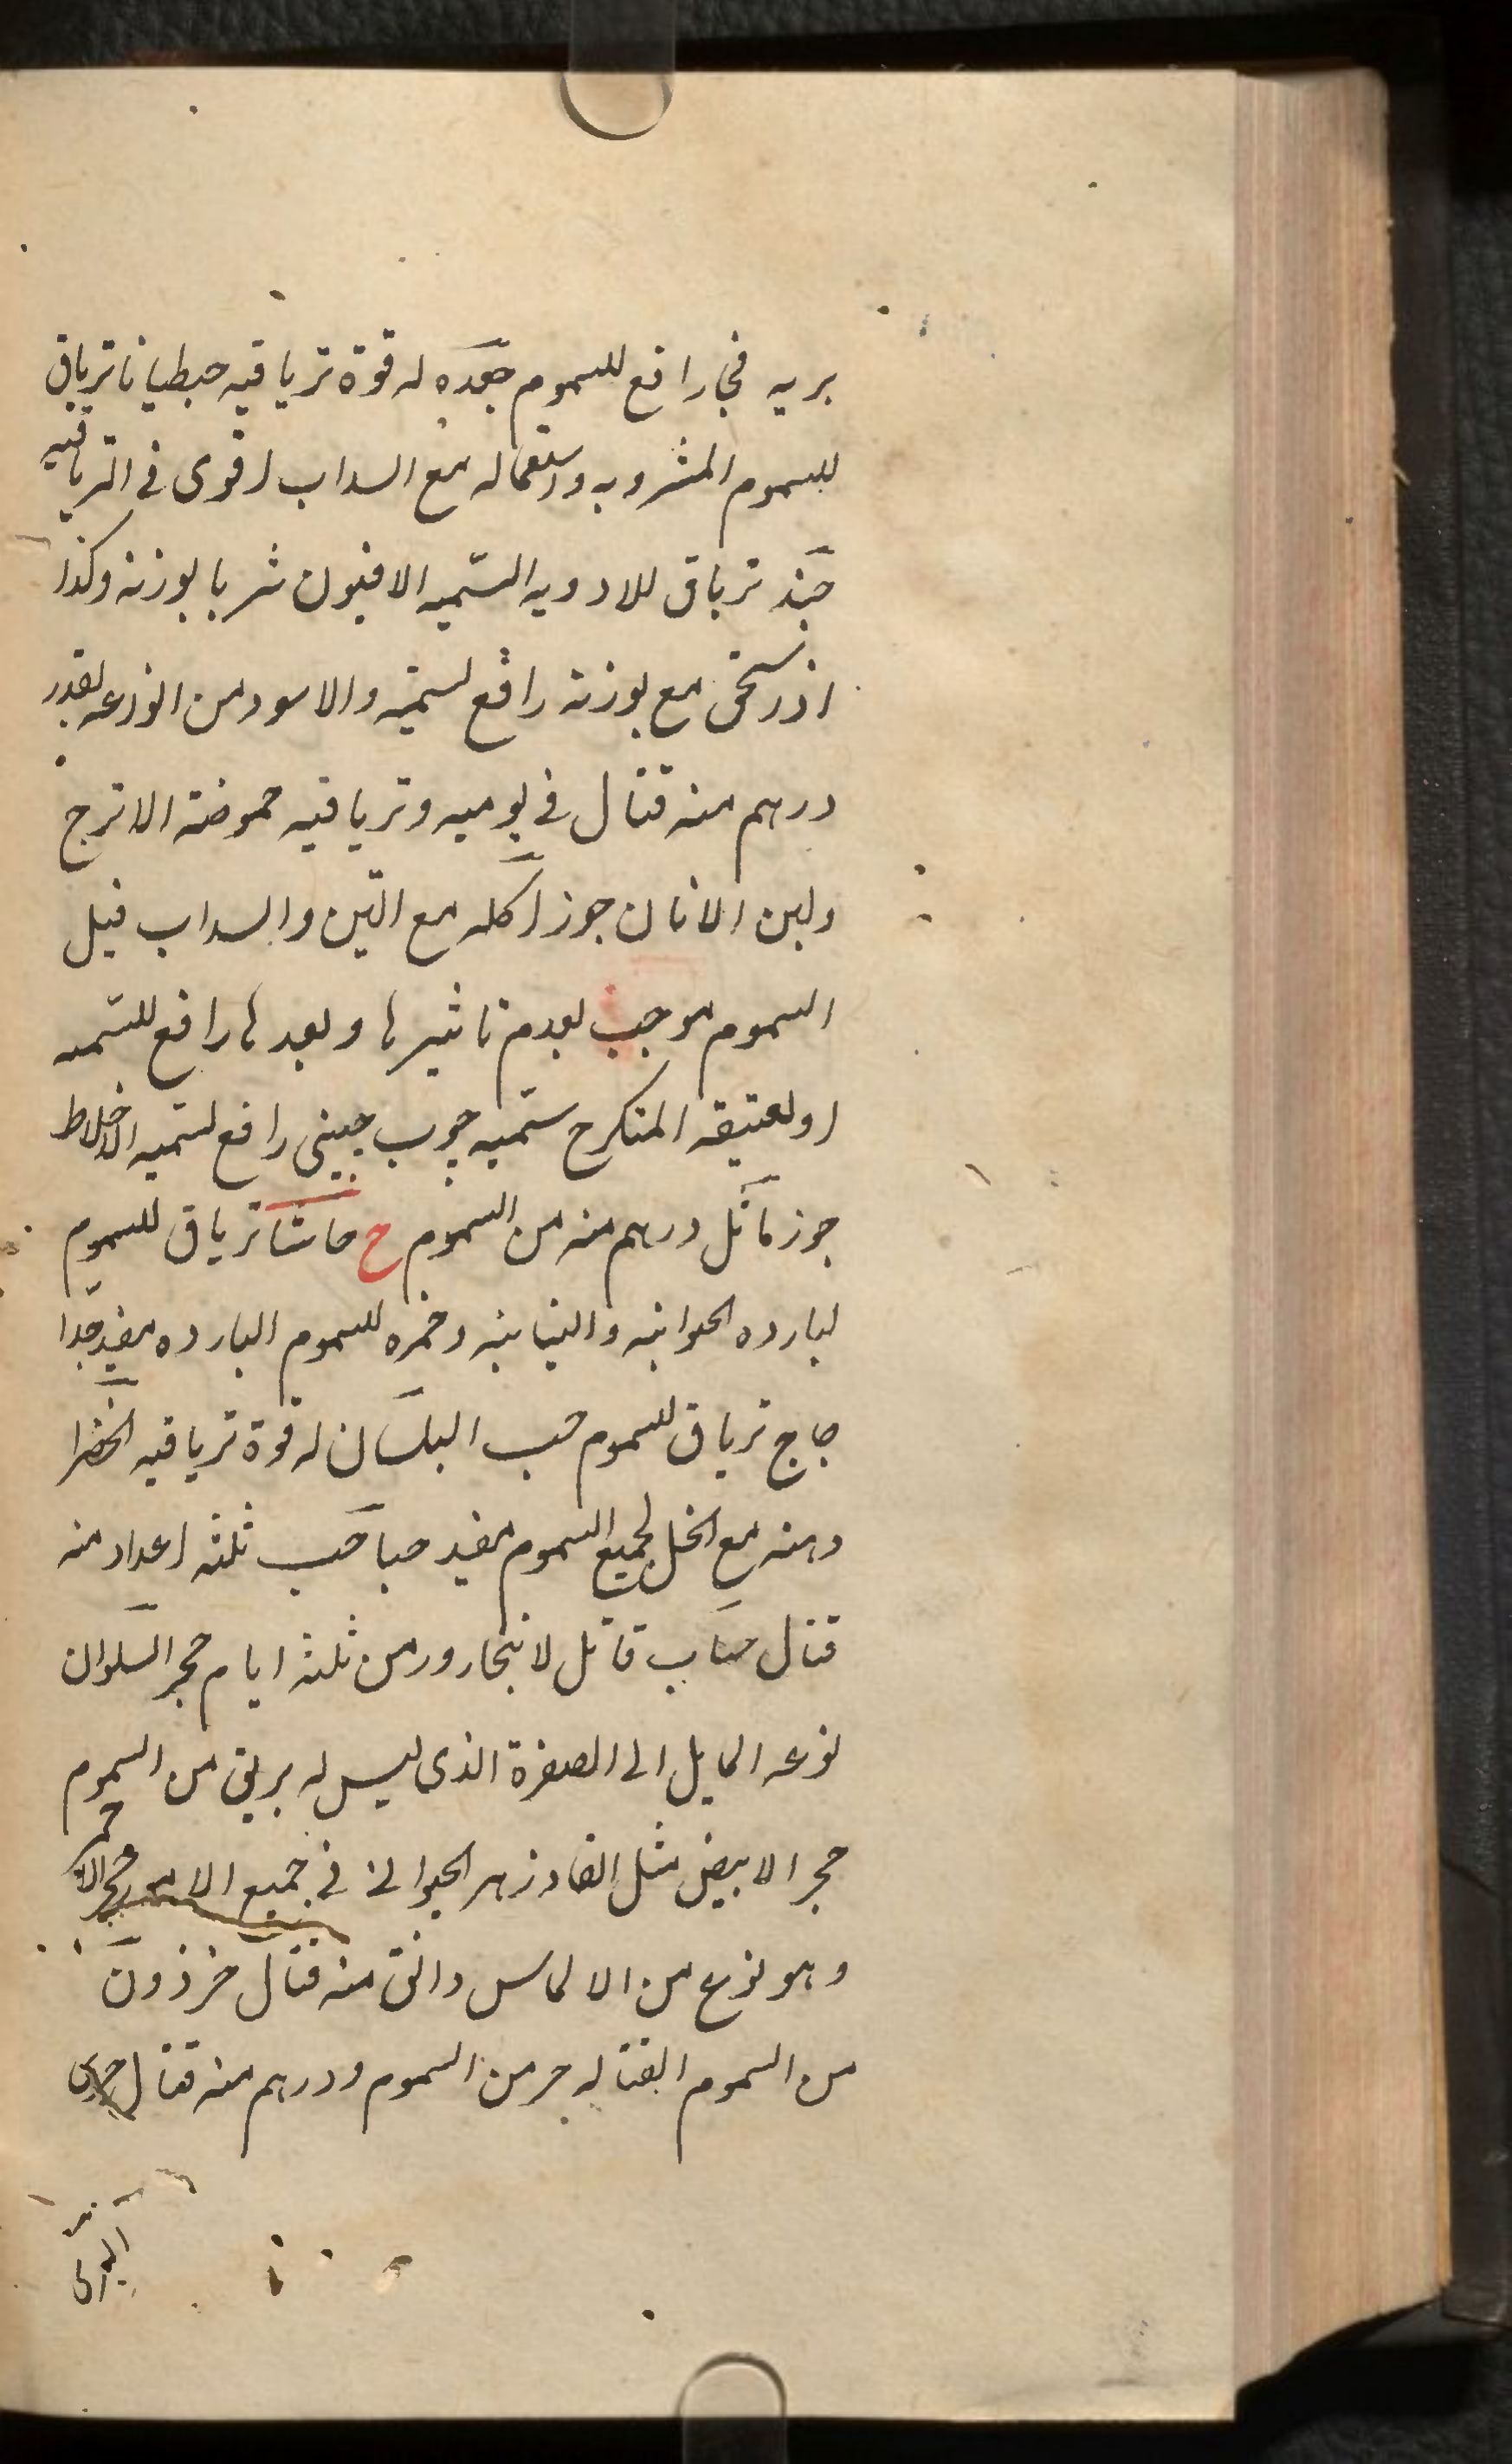 بريه فجار افع للسموم جعده له قوة ترياقيه جنطيانا ترياق
للسموم المشروبه واستعماله مع السداب اقوى فى الترياقيه
جند ترياق للادويه السّميه الافيون شربا بوزنه وكذا
اذر سحق مع بوزنه رافع لسميّته والاسود من انوذعه بقدر
درهم منه قتال فى يوميه وترياقيه حموضة الاترج
ولبن الاتان جوز اكله مع التين والسداب قبل
السموم موجب لعدم تاثيرها وبعدها رافع للسّميه
اولعتيقه المتكرج سّميه چوب چينى رافع لسّميه الاخلاط
جوز ماثل درهم منه من السموم ح حاشا ترياق للسموم
لبارده الحوانيه والنباتيه وخمره للسموم البارده مفيد جّدا
حاج ترياق للسموم حب البلسان له قوة ترياقيه الخضرا
دهنه مع الخل لجميع السموم مفيد حباحب ثلثه اعداد منه
قتال حباب قاتل لا يتجاوز من ثلثه ايام حجر السلوان
نوعه المايل الى الصفرة الذى ليس له بريق من السموم
حجر الابيض مثل الفادزهر الحيوانى فى جميع الامور حجر الاحمر
وهو نوع من الالماس دانق منه قتال خرذون
من السموم القتاله حر من السموم ودرهم منه قتال